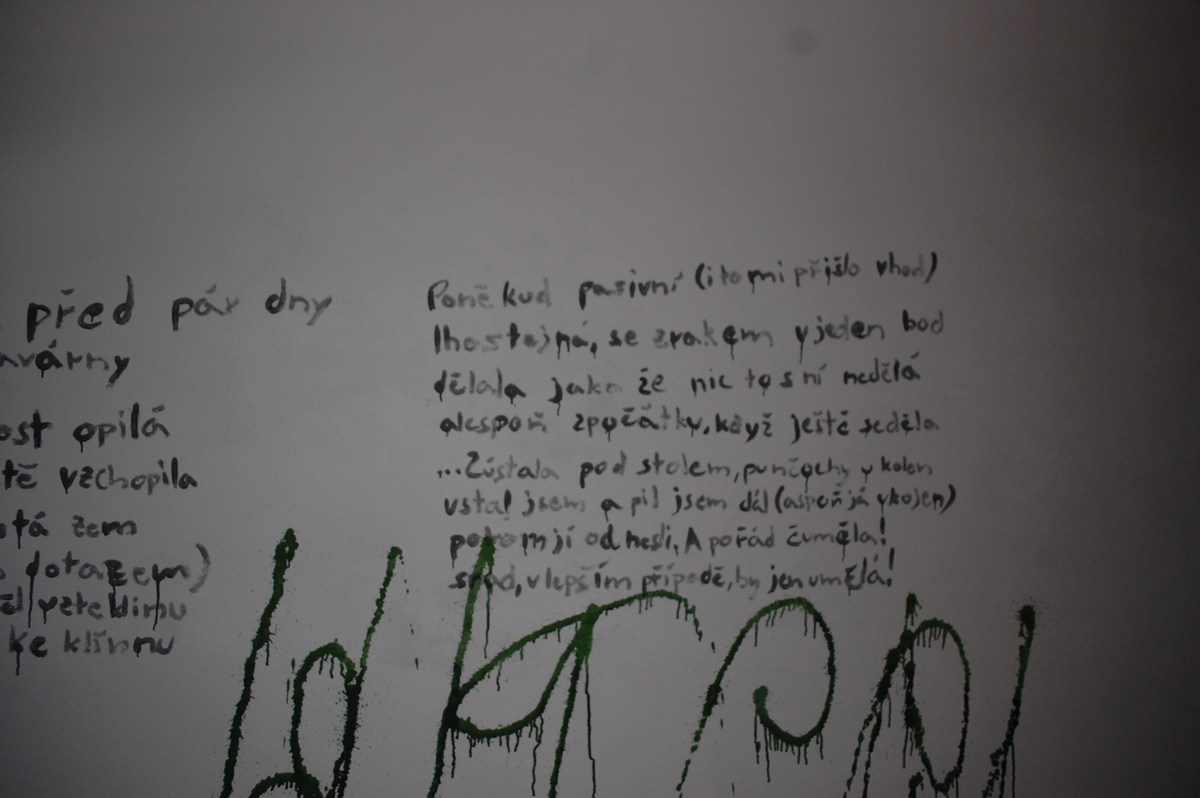 před pár dny
avárny
ost opilá
tě vzchopila
stá zem
dotazem)
ěl vzteklinu
ke klínnu
Poněkud pasivní (i to mi přišlo vhod)
lhostejná, se zrakem v jeden bod
dělala jako že nic to s ní nedělá
alespoň zpočátku, když ještě seděla
...Zůstala pod stolem, punčochy v kolen
vstal jsem a pil jsem dál (aspoň já ukojen)
potom jí odnesli. A pořád čuměla!
snad, v lepším případě, by jen umělá!